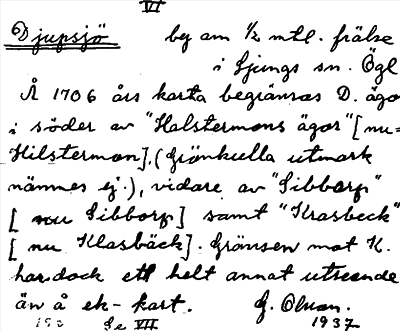 VI
Djupsjö by om ½ mtl. frälse
i Ljungs sn. Ögl
Å 1706 års karta begränsas D. ägor
i söder av "Halstermons ägor" [nu=
Hilstermon], (Grönkulla utmark
nämnes ej.), vidare av "Sibbarp"
[nu Sibborp] samt "Krasbeck"
[nu Klasbäck]. Gränsen mot K.
har dock ett helt annat utseende
än å ek-kart. G. Olson.
Se VII 1937